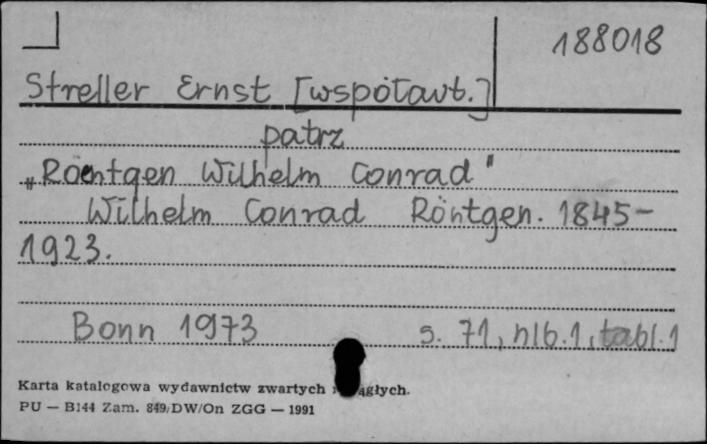 188018
Streller Ernst [współaut.]
patrz
„Röentgen Wilhelm Conrad"
Wilhelm Conrad Röntgen. 1845-
1923.
Bonn 1973 s. 71, nlb. 1, tabl. 1
Karta katalogowa wydawnictw zwartych i
PU — B144 Zam. 849/DW/On ZGG — 1991